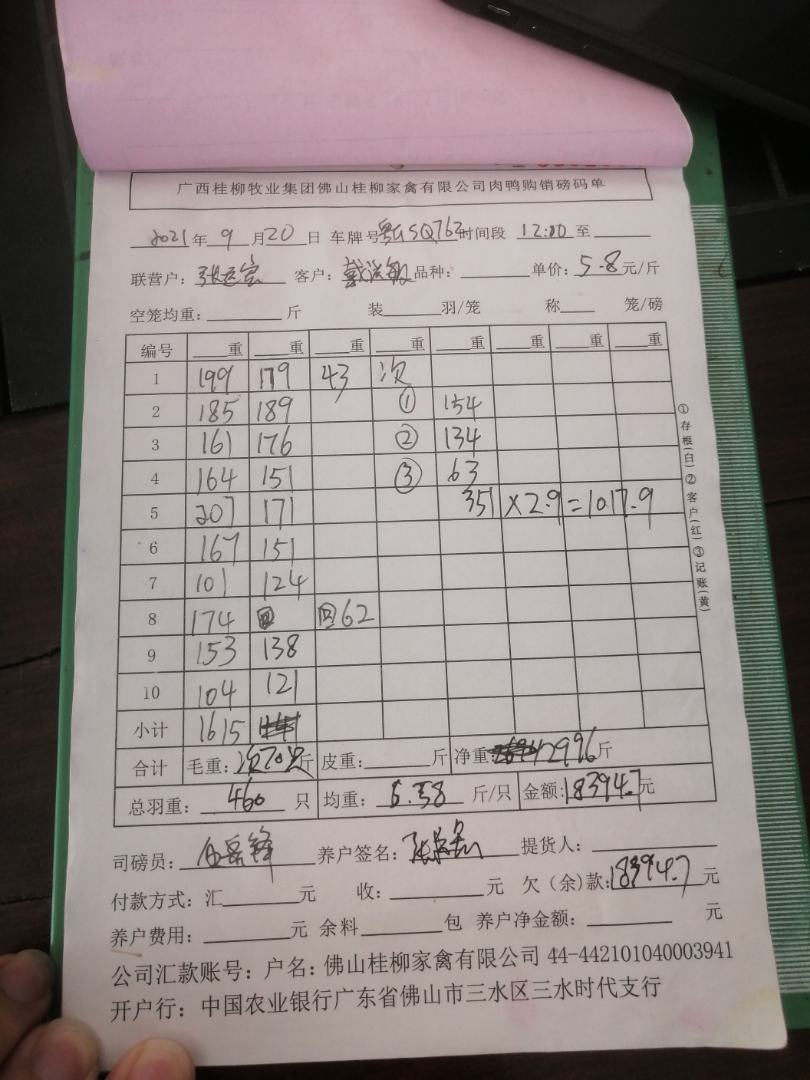 广西桂柳牧业集团佛山桂柳家禽有限公司肉鸭购销磅码单
2021年 9 月 20 日 车牌号 粤GSQ762 时间段 12:00 至
联营户: 客户: 品种: 单价: 5.8 元/斤
空笼均重: 斤 装 羽/笼 称 笼/磅
编号 重 重 重 重 重 重 重 重
1 199 179 43 次
2 185 189 ① 154
3 161 176 ② 134
4 164 151 ③ 63
5 207 171 351 ×2.9 =1017.9
6 167 151
7 101 124
8 174 回62
9 153 138
10 104 121
小计 1615
合计 毛重: 次70只 斤 皮重: 斤 净重: 2996 斤
总羽重: 460 只 均重: 6.38 斤/只 金额: 18394.7 元
司磅员: 养户签名: 提货人:
付款方式: 汇 元 收: 元 欠(余)款: 18394.7 元
养户费用: 元 余料 包 养户净金额: 元
公司汇款账号: 户名: 佛山桂柳家禽有限公司 44-442101040003941
开户行: 中国农业银行广东省佛山市三水区三水时代支行
①存根(白)②客户(红)③记账(黄)